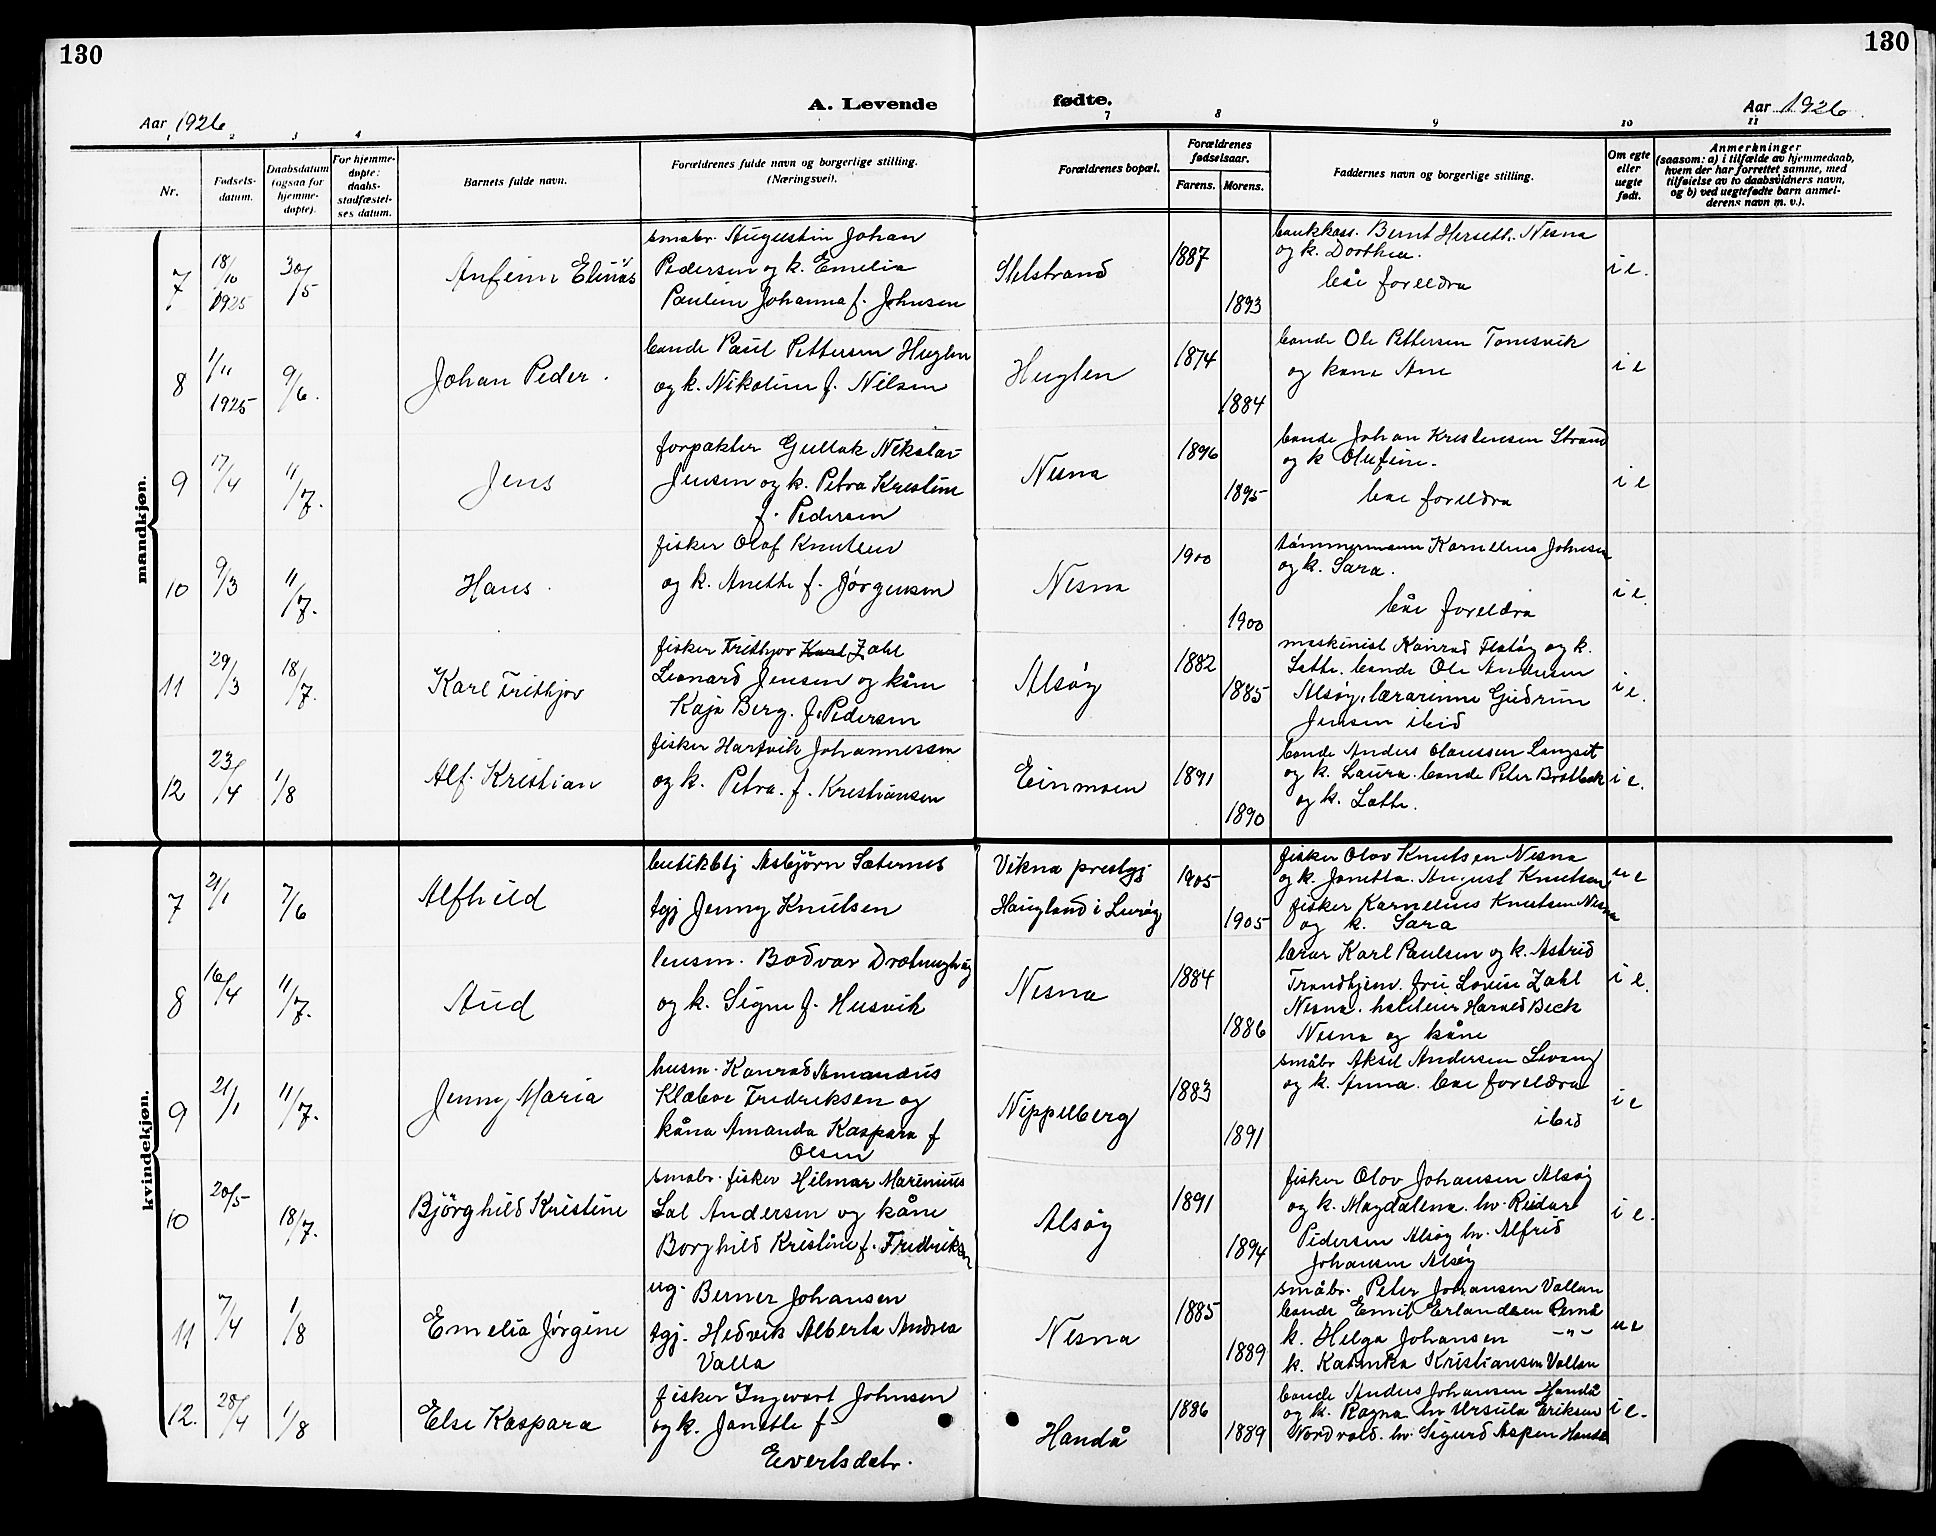 130
130
A. Levende fødte.
Aar 1926
Aar 1926.
1 2 3 4 7 8 9 10 11
Nr.
Fødsels-
datum.
Daabsdatum
(ogsaa for
hjemme-
døpte).
For hjemme-
døpte:
daabs-
stadfæstel-
ses datum.
Barnets fulde navn.
Forældrenes fulde navn og borgerlige stilling.
(Næringsvei).
Forældrenes bopæl.
Forældrenes
fødselsaar.
Farens. Morens.
Faddernes navn og borgerlige stilling.
Om egte
eller
uegte
født.
Anmerkninger
(saasom: a) i tilfælde av hjemmedaab,
hvem der har forrettet samme, med
tilføielse av to daabsvidners navn,
og b) ved uegtefødte barn anmel-
derens navn m. v.).
mandkjøn.
7 18/10 1925 30/5 Anfinn Elinus
småbr. Augustin Johan
Pedersen og k. Emelia
Paulin Johanna f. Johnsen
1887 1893
bankkass. Bernt Herseth. Nesna
og k. Dorthea.
båe foreldra
i e.
8 1/11 1925 9/6. Johan Peder.
bonde Paul Pettersen Huglen
og k. Nikoline f. Nilsen
Huglen
1874 1884
bonde Ole Pettersen Tomsvik
og kone Ane
i e
9 17/4 11/7. Jens
forpakter Gullak Nikolai
Jensen og k. Petra Kristine
f. Pedersen
Nesna
1896 1895
bonde Johan Kristensen Strand
og k Olufine.
båe foreldra
i e
10 9/3 11/7. Hans.
fisker Olaf Knutsen
og k. Anette f. Jørgensen
Nesna
1900 1900
tømmermann Kornelius Johnsen
og k. Sara.
båe foreldra
i e.
11 29/3 18/7. Karl Frithjov
fisker Frithjov Karl Zahl
Leonard Jensen og kåne
Kaja Berg. f. Pedersen
Alsøy
1882 1885
maskinist Konrad Flatøy og k.
Lotte. bonde Ole Andersen
Alsøy, lærarinne Gudrun
Jensen ibid
i e.
12 23/4 1/8 Alf. Kristian
fisker Hartvik Johannessen
og k. Petra. f. Kristiansen
Einmoen
1891 1890
bonde Anders Olaussen Langset
og k. Laura. bonde Peter
og k. Lotte.
i e.
kvindekjøn.
7 21/1 7/6 Alfhild
butikbtj Asbjörn Sæternes
tgj Jenny Knutsen
Vikna prestgj
Haugland i Lurøy
1905 1905
fisker Olov Knutsen Nesna
og k. Janetta. August Knutsen
fisker Kornelius Knutsen Nesna
og k. Sara
u e
8 16/4 11/7. Aud
lensm. Bodvar Drotninghaug
og k. Signe f. Husvik
Nesna
1884 1886
lærar Karl Paulsen og k. Astrid
Trondhjem. fru Lovise Zahl
Nesna. Harald Beck
Nesna og kåne
i e.
9 21/1 11/7. Jenny Maria
husm. Konrad Amandus
Klæboe Fredriksen og
kåna Amanda Kaspara f
Olsen
Nippelberg
1883 1891
småbr Aksel Andersen Levang
og k. Anna. båe foreldra
ibid
i e
10 20/5 18/7. Björghild Kristine
småbr. fisker Hilmar Marinius
Sal Andersen og kåne
Borghild Kristine f. Fredriksen
Alsøy
1891 1894
fisker Olov Johansen Alsøy
og k. Magdalena. hr. Reidar
Pedersen Alsøy hr. Alfrid
Johansen Alsøy
i e.
11 7/4 1/8 Emelia Jørgine
ug. Berner Johansen
tgj. Hedvik Alberta Andrea
Valla
Nesna
1885 1889
småbr. Peter Johansen Vallan
bonde Emil Erlandsen
k. Helga Johansen -"-
k. Katinka Kristiansen Vallan
u e
12. 28/4 1/8 Else Kaspara
fisker Ingvart Johnsen
og k. Janette f
Evertsdatr.
Handå
1886 1889
bonde Anders Johansen Handå
og k. Ragna hr Ursula Eriksen
Nordvold. hr. Sigurd Aspen Handå
i e.